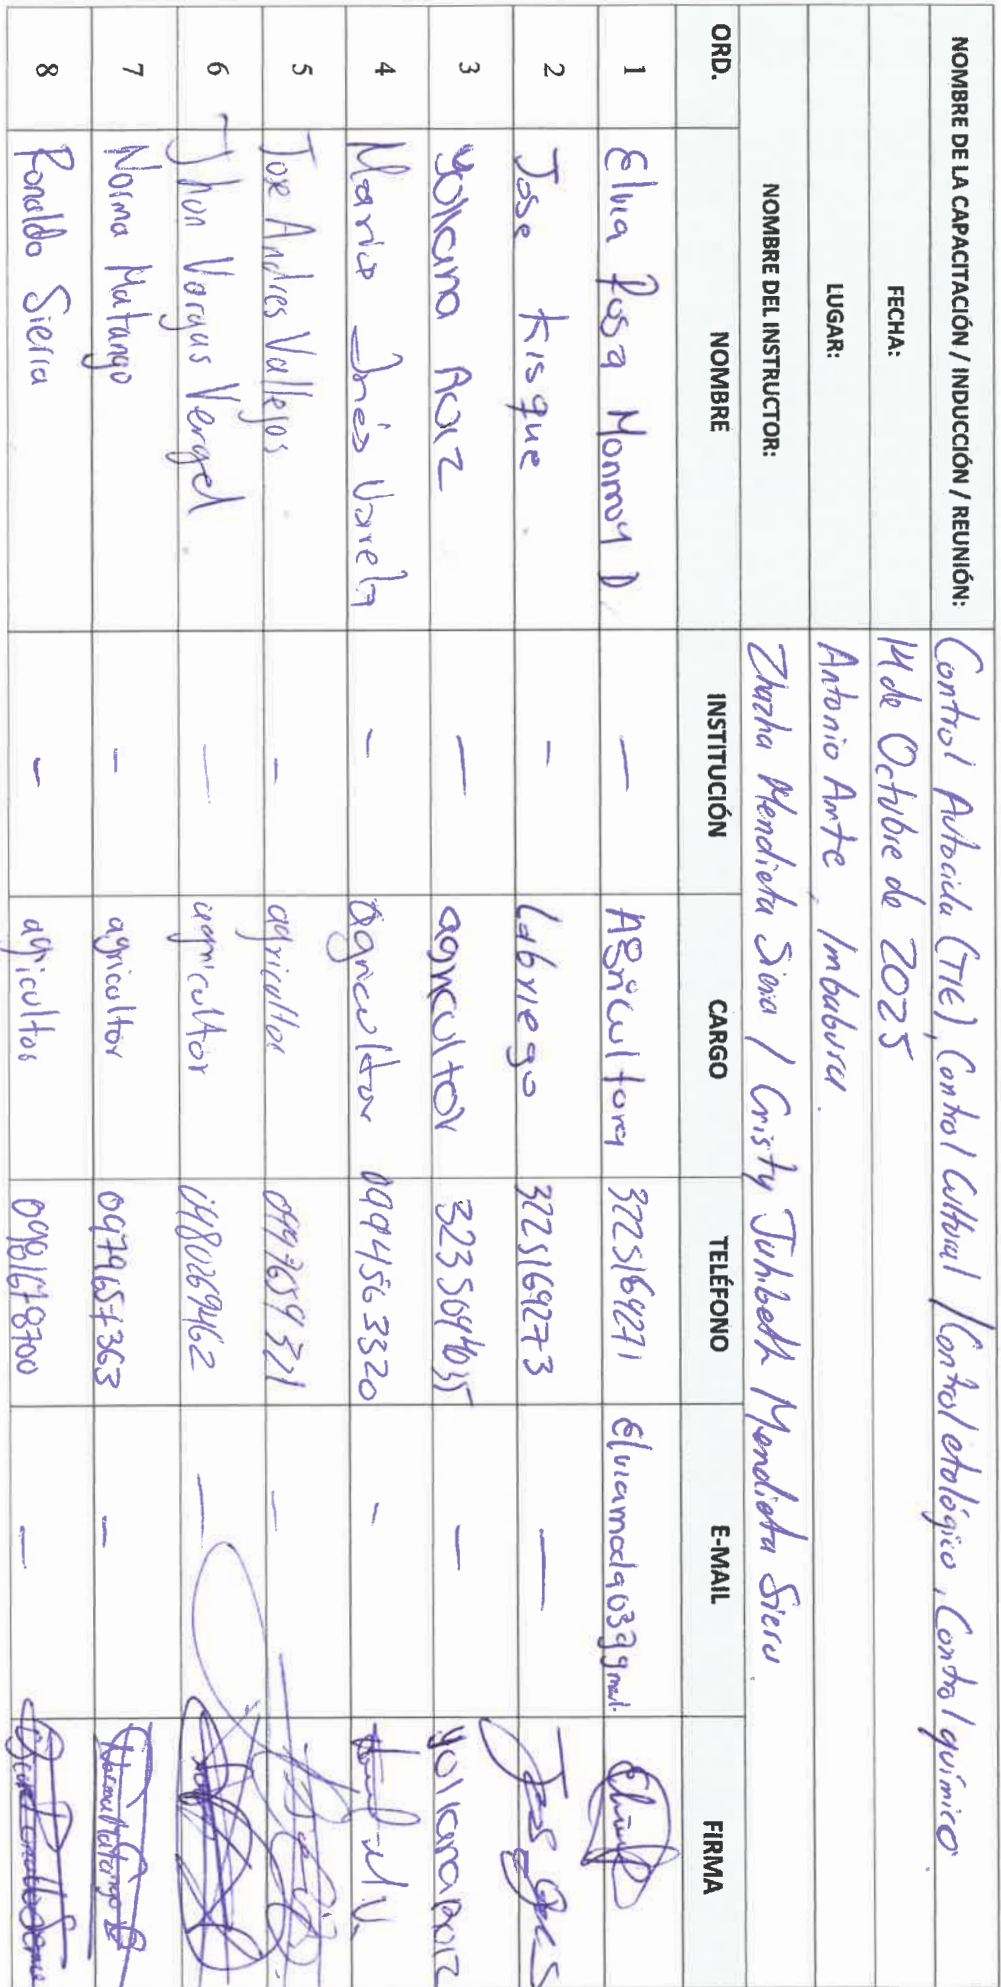 NOMBRE DE LA CAPACITACIÓN / INDUCCIÓN / REUNIÓN: Control Autocida (TIE), Control Cultural / Control etológico, Control químico.
FECHA: 14 de Octubre de 2025
LUGAR: Antonio Ante, Imbabura.
NOMBRE DEL INSTRUCTOR: Zhazha Mendieta Siera / Cristy Juhibeth Mendieta Siera.
ORD. NOMBRE INSTITUCIÓN CARGO TELÉFONO E-MAIL FIRMA
1 Elvia Rosa Monmoy D. — Agricultora 3225169271 Elviamoda03ggmail.
2 Jose Kisque — Labriego 3225169273 —
3 Yolkana Roiz — agricultor 3235094035 — Yolkana Roiz
4 Maria Inés Varela - agricultor 0994563320 -
5 Jose Andres Vallejos - agricultor 0997659321 —
6 Jhon Vargas Vergel — agricultor 0480269462 —
7 Norma Matango - agricultor 0979657363 —
8 Ronaldo Sierra - agricultor 0981678700 —